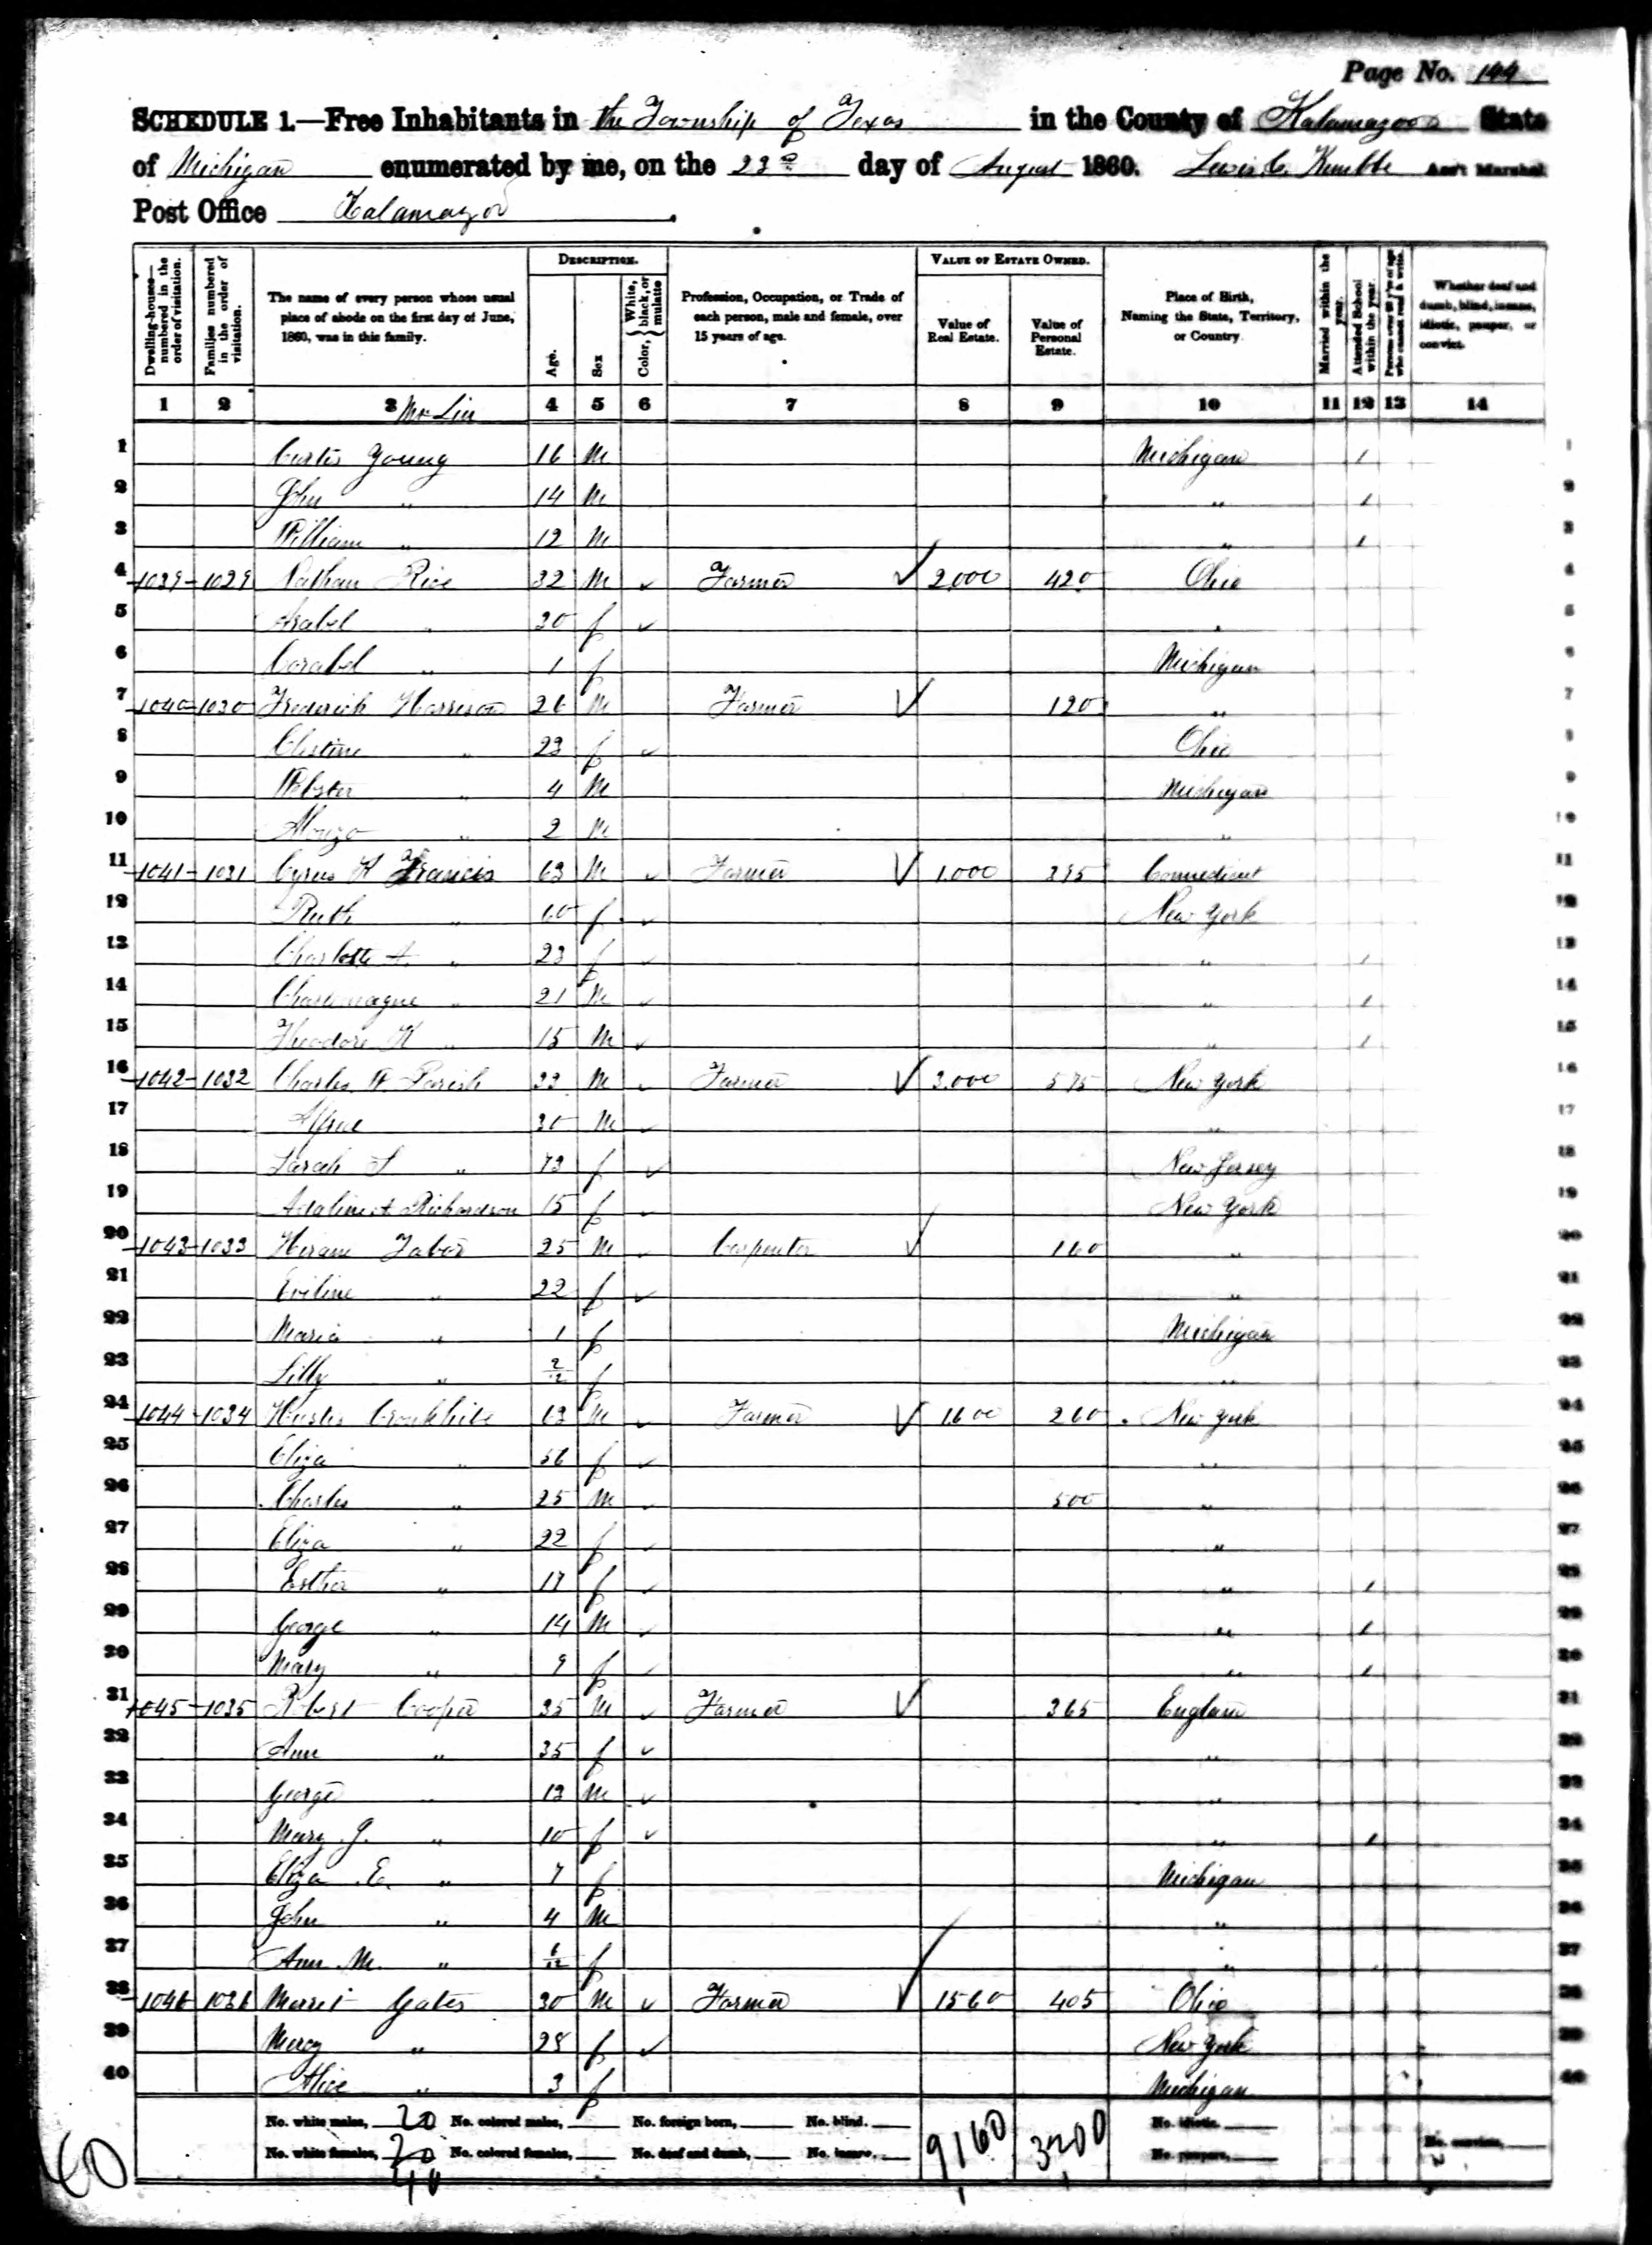 Page No. 144
SCHEDULE 1.—Free Inhabitants in the Township of Texas in the County of Kalamazoo State
of Michigan enumerated by me, on the 23d day of August 1860. Lewis C. Kimble Ass't Marshal
Post Office Kalamazoo
Dwelling-houses—numbered in the order of visitation. Families numbered in the order of visitation. The name of every person whose usual place of abode on the first day of June, 1860, was in this family. DESCRIPTION. Age. Sex Color, { White, black, or mulatto Profession, Occupation, or Trade of each person, male and female, over 15 years of age. VALUE OF ESTATE OWNED. Value of Real Estate. Value of Personal Estate. Place of Birth, Naming the State, Territory, or Country. Married within the year. Attended School within the year. Persons over 20 y'rs of age who cannot read & write. Whether deaf and dumb, blind, insane, idiotic, pauper, or convict.
1 2 3 4 5 6 7 8 9 10 11 12 13 14
1 Curtis Young 16 M Michigan / 1
2 John " 14 M " / 2
3 William " 12 M " / 3
4 1039 1029 Nathan Rice 32 M ✓ Farmer ✓ 2,000 420 Ohio 4
5 " 30 f ✓ " 5
6 Corabel " 1 f Michigan 6
7 1040 1030 Frederick Harrison 26 M Farmer ✓ 120 " 7
8 " 23 f ✓ Ohio 8
9 Webster " 4 M Michigan 9
10 Alonzo " 2 M " 10
11 1041 1031 Cyrus H Francis 63 M ✓ Farmer ✓ 1,000 395 Connecticut 11
12 Ruth " 60 f ✓ New York 12
13 Charlotte A. " 23 f ✓ " / 13
14 Charlemagne " 21 M ✓ " / 14
15 Theodore H " 15 M ✓ " / 15
16 1042 1032 Charles W Parish 33 M ✓ Farmer ✓ 3,000 575 New York 16
17 30 M ✓ " 17
18 Sarah S " 73 f ✓ New Jersey 18
19 Adaline A Richardson 15 f ✓ New York 19
20 1043 1033 Hiram Tabor 25 M ✓ Carpenter ✓ 160 " 20
21 Eviline " 22 f ✓ " 21
22 Maria " 1 f Michigan 22
23 Lilly " 2/12 f " 23
24 1044 1034 63 M ✓ Farmer ✓ 1600 260 New York 24
25 Eliza " 56 f ✓ " 25
26 Charles " 25 M ✓ 500 " 26
27 Eliza " 22 f ✓ " 27
28 Esther " 17 f ✓ " / 28
29 George " 14 M ✓ " / 29
30 Mary " 9 f ✓ " / 30
31 1045 1035 Robert Cooper 35 M ✓ Farmer ✓ 365 England 31
32 Ann " 35 f ✓ " 32
33 George " 13 M ✓ " 33
34 Mary J. " 10 f ✓ " / 34
35 Eliza E. " 7 f Michigan 35
36 John " 4 M " 36
37 Ann M. " 6/12 f " 37
38 1046 1036 Merrit Gates 30 M ✓ Farmer ✓ 1560 405 Ohio 38
39 Mercy " 28 f ✓ New York 39
40 Alice " 3 f Michigan 40
No. white males, 20 No. colored males, No. foreign born, No. blind. 9160 3200 No. idiotic.
No. white females, 20 No. colored females, No. deaf and dumb, No. insane, No. paupers, No. convicts,
40